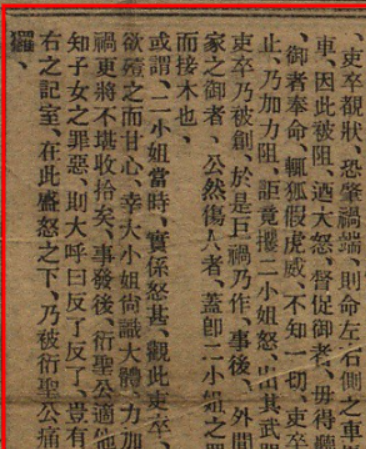 、吏卒覩狀、恐肇禍端、則命左右側之車
車、因此被阻、迺大怒、督促御者、毋得聽
、御者奉命、輒狐假虎威、不知一切、吏卒
止、乃加力阻、詎竟攖二小姐怒、出其武
吏卒乃被創、於是巨禍乃作、事後、外間
家之御者、公然傷人者、蓋卽二小姐之
而接木也、
或謂、二小姐當時、實係怒甚、觀此吏卒、
欲殪之而甘心、幸大小姐尙識大體、力加
禍更將不堪收拾矣、事發後、衍聖公適他
知子女之罪惡、則大呼曰反了反了、豈有
右之記室、在此盛怒之下、乃被衍聖公痛
、